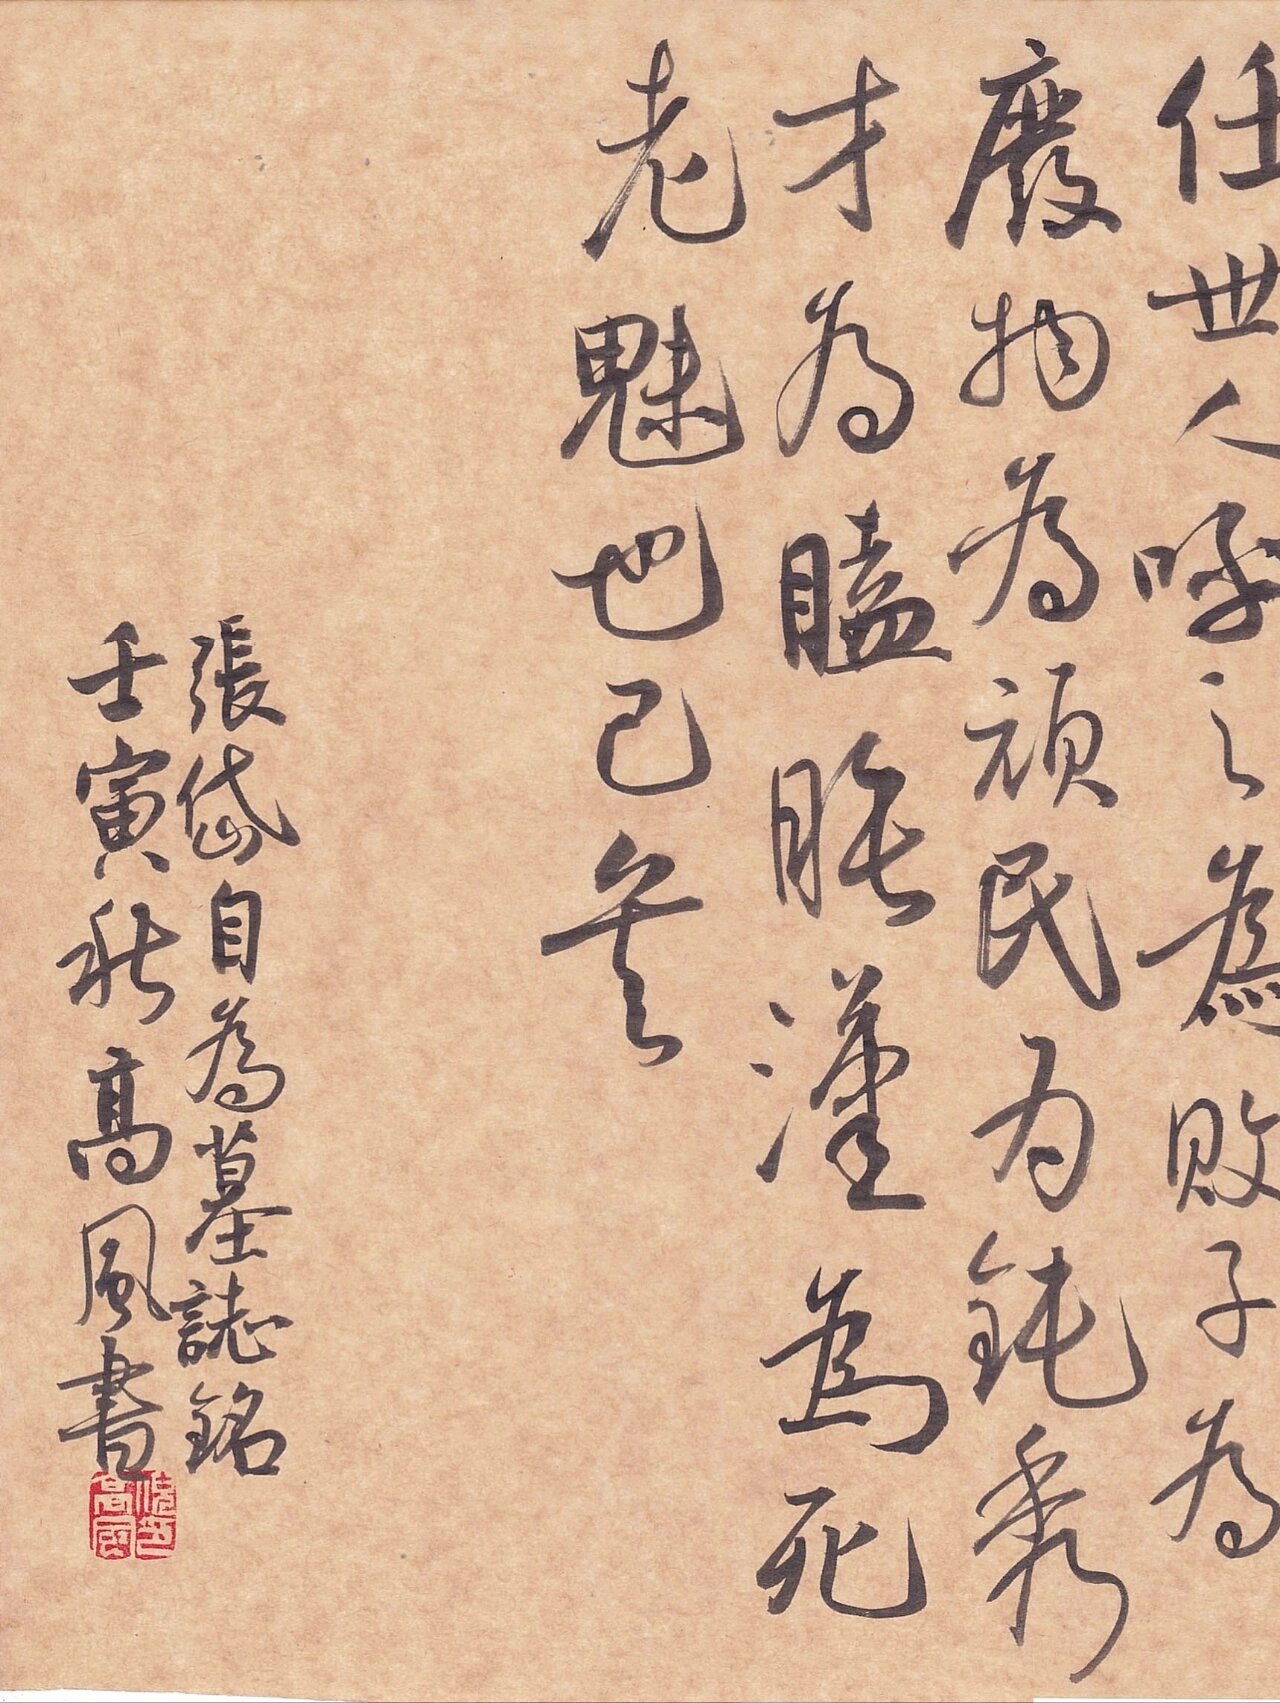 任世人呼之為敗子為
廢物為頑民为鈍秀
才為瞌睡漢為死
老魅也已矣
張岱自為墓誌銘
壬寅秋高风書